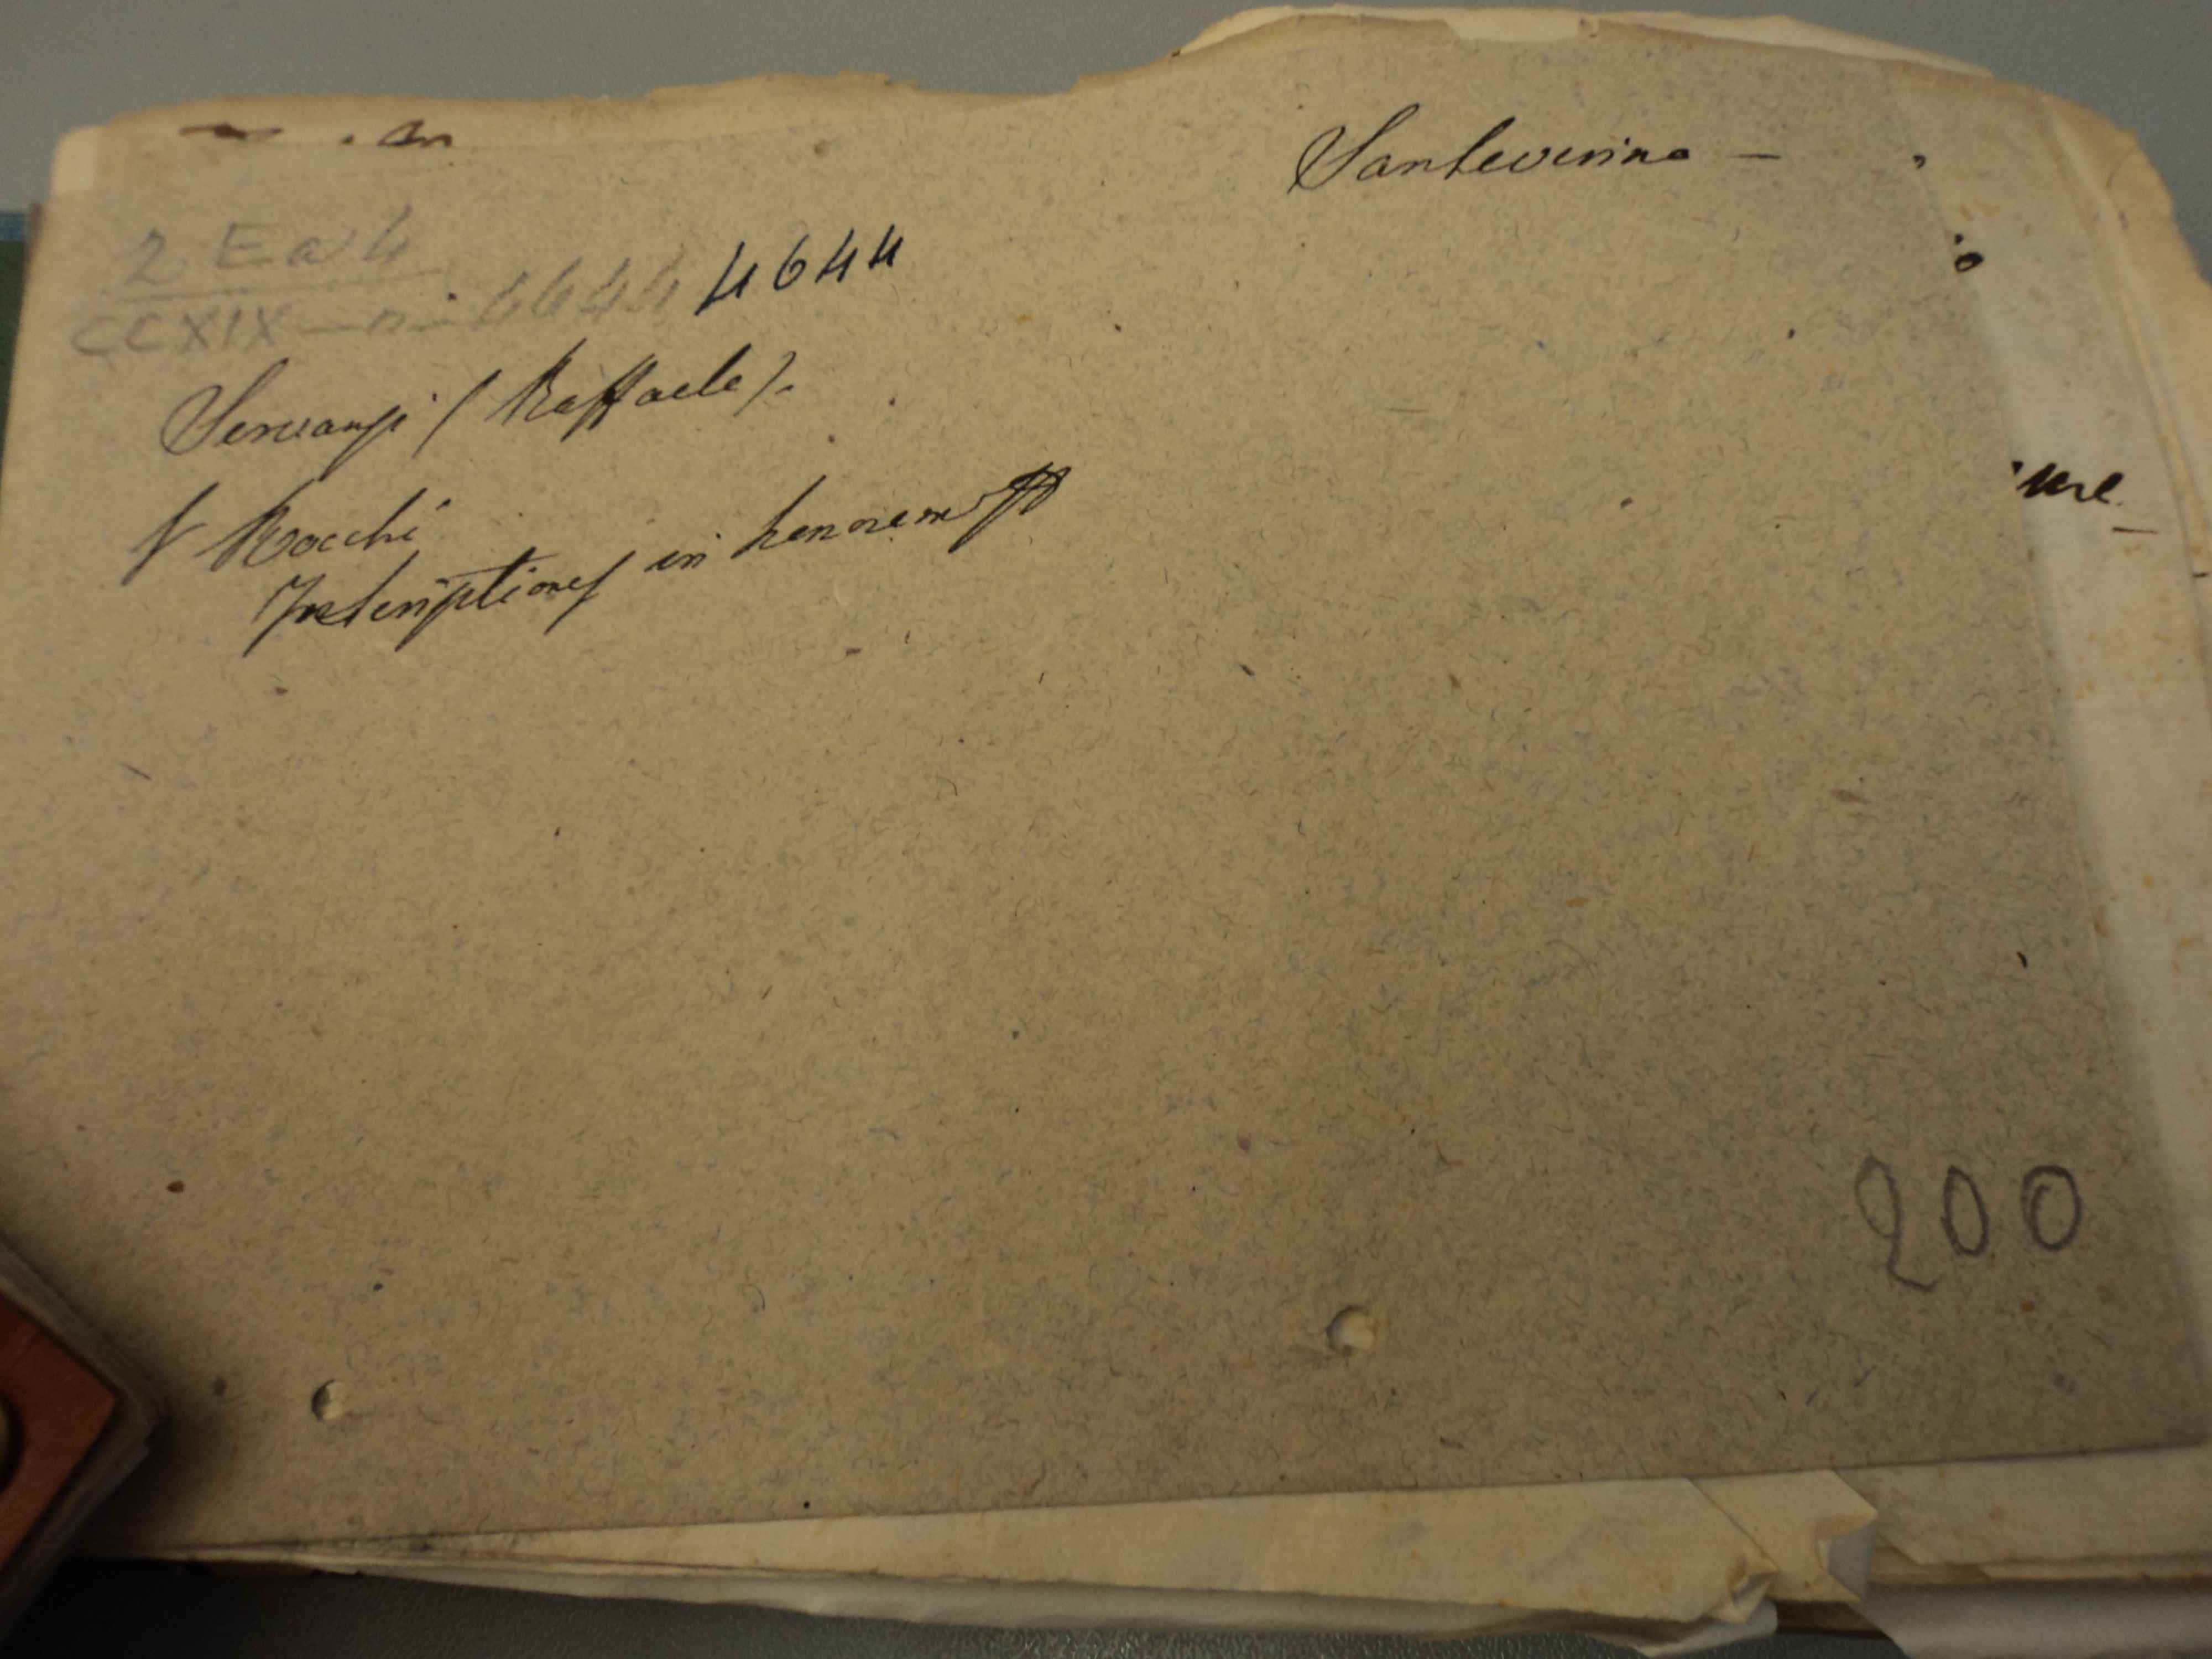 Sanseverino —
2 Ea 4
CCXIX — n. 4644 4644
Servanzi (Raffaele).
V Rocchi
Inscriptiones in honorem
200